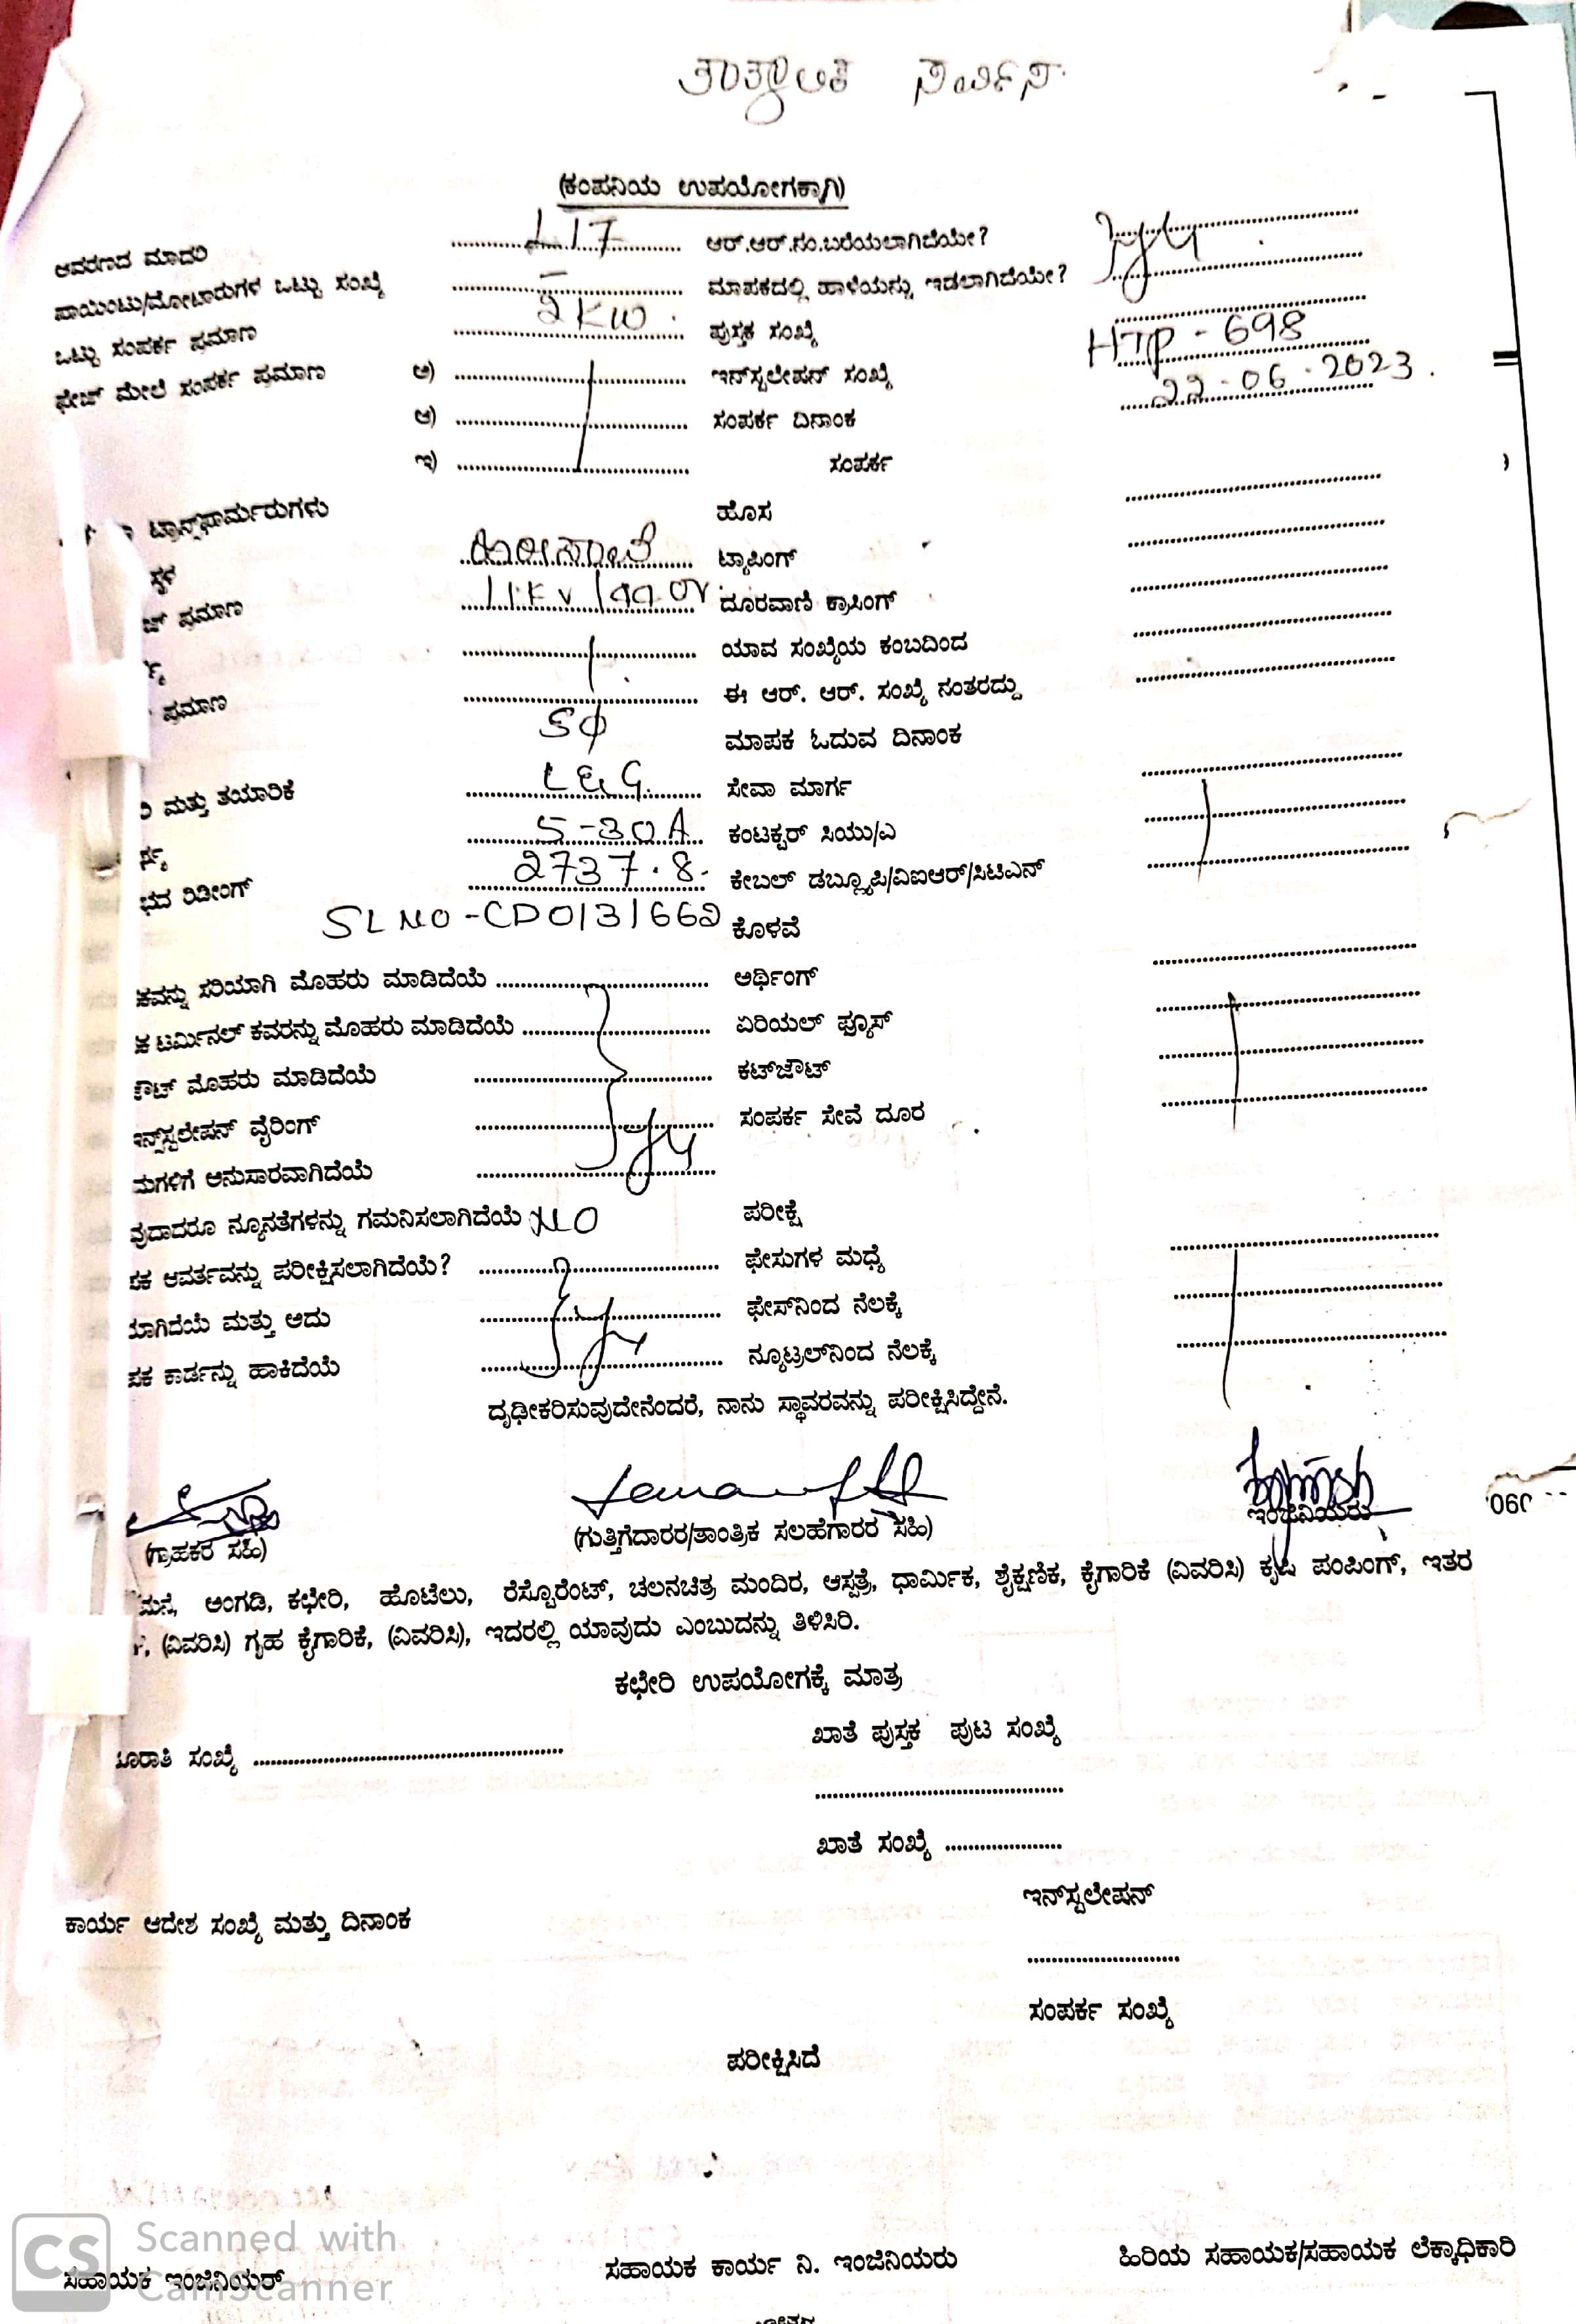 ತಾತ್ಕಾಲಿಕ ಸರ್ವಿಸ್
(ಕಂಪನಿಯ ಉಪಯೋಗಕ್ಕಾಗಿ)
ಆವರಣದ ಮಾದರಿ LT7 ಆರ್.ಆರ್.ನಂ.ಬರೆಯಲಾಗಿದೆಯೇ?
ಪಾಯಿಂಟು/ಮೋಟಾರುಗಳ ಒಟ್ಟು ಸಂಖ್ಯೆ – ಮಾಪಕದಲ್ಲಿ ಹಾಳೆಯನ್ನು ಇಡಲಾಗಿದೆಯೇ?
ಒಟ್ಟು ಸಂಪರ್ಕ ಪ್ರಮಾಣ 2KW ಪುಸ್ತಕ ಸಂಖ್ಯೆ
ಫೇಜ್ ಮೇಲೆ ಸಂಪರ್ಕ ಪ್ರಮಾಣ ಅ) ಇನ್‌ಸ್ಟಲೇಷನ್ ಸಂಖ್ಯೆ HTP - 698
ಆ) ಸಂಪರ್ಕ ದಿನಾಂಕ 22-06-2023.
ಇ) ಸಂಪರ್ಕ
ಟ್ರಾನ್ಸ್‌ಫಾರ್ಮರುಗಳು ಹೊಸ
ಸ್ಥಳ ಟ್ಯಾಪಿಂಗ್
ಜ್ ಪ್ರಮಾಣ ದೂರವಾಣಿ ಕ್ರಾಸಿಂಗ್
ಯಾವ ಸಂಖ್ಯೆಯ ಕಂಬದಿಂದ
ಪ್ರಮಾಣ ಈ ಆರ್. ಆರ್. ಸಂಖ್ಯೆ ನಂತರದ್ದು
Sφ ಮಾಪಕ ಓದುವ ದಿನಾಂಕ
ರಿ ಮತ್ತು ತಯಾರಿಕೆ L&G ಸೇವಾ ಮಾರ್ಗ
5-30A ಕಂಟಕ್ಟರ್ ಸಿಯು/ಎ
ಭದ ರಿಡೀಂಗ್ 2737.8 ಕೇಬಲ್ ಡಬ್ಲ್ಯೂಪಿ/ವಿಐಆರ್/ಸಿಟಿಎನ್
SL NO -CD0131662 ಕೊಳವೆ
ಕವನ್ನು ಸರಿಯಾಗಿ ಮೊಹರು ಮಾಡಿದೆಯೆ ಅರ್ಥಿಂಗ್
ಕ ಟರ್ಮಿನಲ್ ಕವರನ್ನು ಮೊಹರು ಮಾಡಿದೆಯೆ ಏರಿಯಲ್ ಫ್ಯೂಸ್
ಔಟ್ ಮೊಹರು ಮಾಡಿದೆಯೆ ಕಟ್‌ಜೌಟ್
ಇನ್‌ಸ್ಟಲೇಷನ್ ವೈರಿಂಗ್ ಸಂಪರ್ಕ ಸೇವೆ ದೂರ
ಮಗಳಿಗೆ ಅನುಸಾರವಾಗಿದೆಯೆ
ವುದಾದರೂ ನ್ಯೂನತೆಗಳನ್ನು ಗಮನಿಸಲಾಗಿದೆಯೆ NO ಪರೀಕ್ಷೆ
ಪಕ ಆವರ್ತವನ್ನು ಪರೀಕ್ಷಿಸಲಾಗಿದೆಯೆ? ಫೇಸುಗಳ ಮಧ್ಯೆ
ಖಾಗಿದೆಯೆ ಮತ್ತು ಅದು ಫೇಸ್‌ನಿಂದ ನೆಲಕ್ಕೆ
ಪಕ ಕಾರ್ಡನ್ನು ಹಾಕಿದೆಯೆ ನ್ಯೂಟ್ರಲ್‌ನಿಂದ ನೆಲಕ್ಕೆ
ದೃಢೀಕರಿಸುವುದೇನೆಂದರೆ, ನಾನು ಸ್ಥಾವರವನ್ನು ಪರೀಕ್ಷಿಸಿದ್ದೇನೆ.
(ಗ್ರಾಹಕರ ಸಹಿ) (ಗುತ್ತಿಗೆದಾರರ/ತಾಂತ್ರಿಕ ಸಲಹೆಗಾರರ ಸಹಿ) ಇಂಜಿನಿಯರು 060
ಮನೆ, ಅಂಗಡಿ, ಕಛೇರಿ, ಹೊಟೆಲು, ರೆಸ್ಟೊರೆಂಟ್, ಚಲನಚಿತ್ರ ಮಂದಿರ, ಆಸ್ಪತ್ರೆ, ಧಾರ್ಮಿಕ, ಶೈಕ್ಷಣಿಕ, ಕೈಗಾರಿಕೆ (ವಿವರಿಸಿ) ಕೃಷಿ ಪಂಪಿಂಗ್, ಇತರ
(ವಿವರಿಸಿ) ಗೃಹ ಕೈಗಾರಿಕೆ, (ವಿವರಿಸಿ), ಇದರಲ್ಲಿ ಯಾವುದು ಎಂಬುದನ್ನು ತಿಳಿಸಿರಿ.
ಕಛೇರಿ ಉಪಯೋಗಕ್ಕೆ ಮಾತ್ರ
ಖಾತೆ ಪುಸ್ತಕ ಪುಟ ಸಂಖ್ಯೆ
ಖೂರಾತಿ ಸಂಖ್ಯೆ
ಖಾತೆ ಸಂಖ್ಯೆ
ಇನ್‌ಸ್ಟಲೇಷನ್
ಕಾರ್ಯ ಆದೇಶ ಸಂಖ್ಯೆ ಮತ್ತು ದಿನಾಂಕ
ಸಂಪರ್ಕ ಸಂಖ್ಯೆ
ಪರೀಕ್ಷಿಸಿದೆ
CS Scanned with
CamScanner
ಸಹಾಯಕ ಇಂಜಿನಿಯರ್ ಸಹಾಯಕ ಕಾರ್ಯ ನಿ. ಇಂಜಿನಿಯರು ಹಿರಿಯ ಸಹಾಯಕ/ಸಹಾಯಕ ಲೆಕ್ಕಾಧಿಕಾರಿ